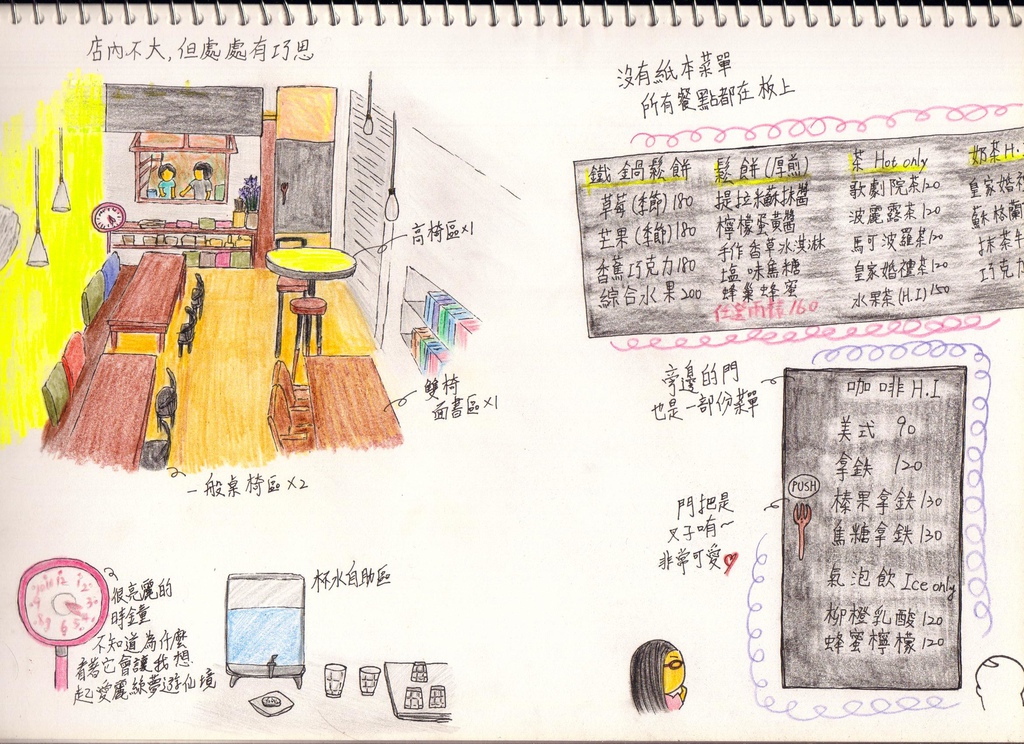 店內不大,但處處有巧思
高椅區x1
雙椅
面書區x1
一般桌椅區x2
很亮麗的
時鐘
不知道為什麼
看著它會讓我想
起愛麗絲夢遊仙境
杯水自助區
沒有紙本菜單
所有餐點都在板上
鐵鍋鬆餅
草莓(季節)180
芒果(季節)180
香蕉巧克力180
綜合水果200
鬆餅(厚煎)
提拉米蘇抹醬
檸檬蛋黃醬
手作香草冰淇淋
塩味焦糖
蜂巢蜂蜜
任選兩種160
茶 Hot only
歌劇院茶120
波麗露茶120
馬可波羅茶120
皇家婚禮茶120
水果茶(H.I)150
奶茶H.
皇家婚禮
蘇格蘭
抹茶牛
巧克
旁邊的門
也是一部份菜單
門把是
叉子唷~
非常可愛
PUSH
咖啡H.I
美式 90
拿鉄 120
榛果拿鉄130
焦糖拿鉄130
氣泡飲 Ice only
柳橙乳酸120
蜂蜜檸檬120